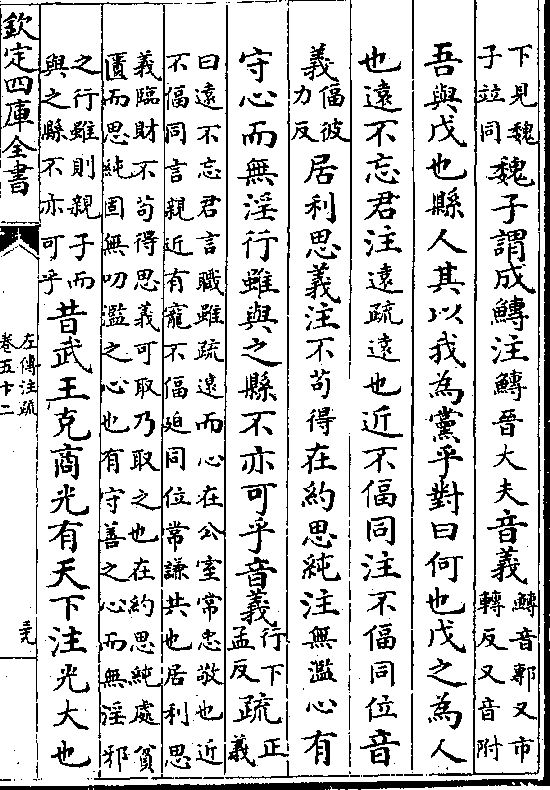 下見魏
子竝同
魏子謂成鱄注鱄晉大夫音義
鱄音鄟又市
轉反又音附
吾與戊也縣人其以我為黨乎對曰何也戊之為人
也遠不忘君注遠疏遠也近不偪同注不偪同位音
義
偪彼
力反
居利思義注不苟得在約思純注無濫心有
守心而無淫行雖與之縣不亦可乎音義
行下
孟反
疏
正
義
曰遠不忘君言職雖疏遠而心在公室常忠敬也近
不偪同言親近有寵不偪迫同位常謙共也居利思
義臨財不苟得思義可取乃取之也在約思純處貧
匱而思純固無叨濫之心也有守善之心而無淫邪
之行雖則親子而
與之縣不亦可乎
昔武王克商光有天下注光大也
欽定四庫全書
左傳注疏
卷五十二
三九